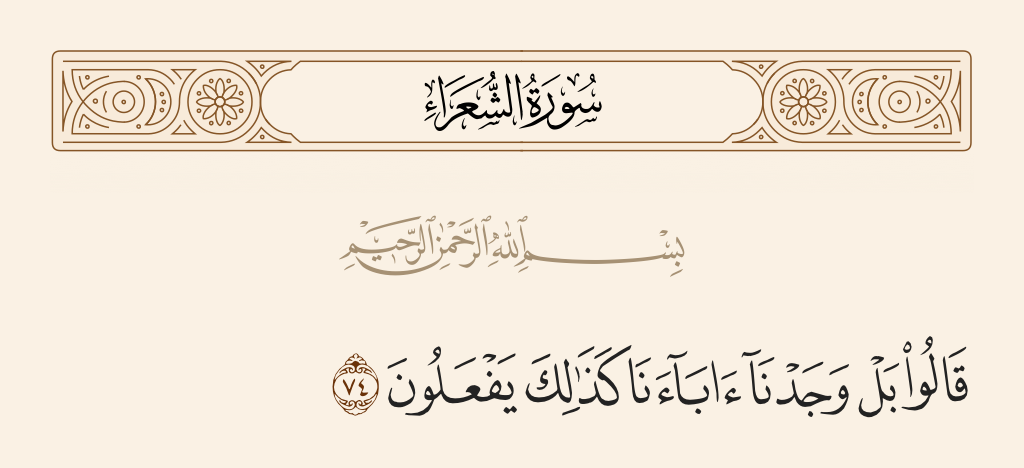 سُورَةُ الشُّعَرَاءِ
بِسْمِ ٱللَّهِ ٱلرَّحْمَٰنِ ٱلرَّحِيمِ
قَالُوا۟ بَلْ وَجَدْنَآ ءَابَآءَنَا كَذَٰلِكَ يَفْعَلُونَ ٧٤